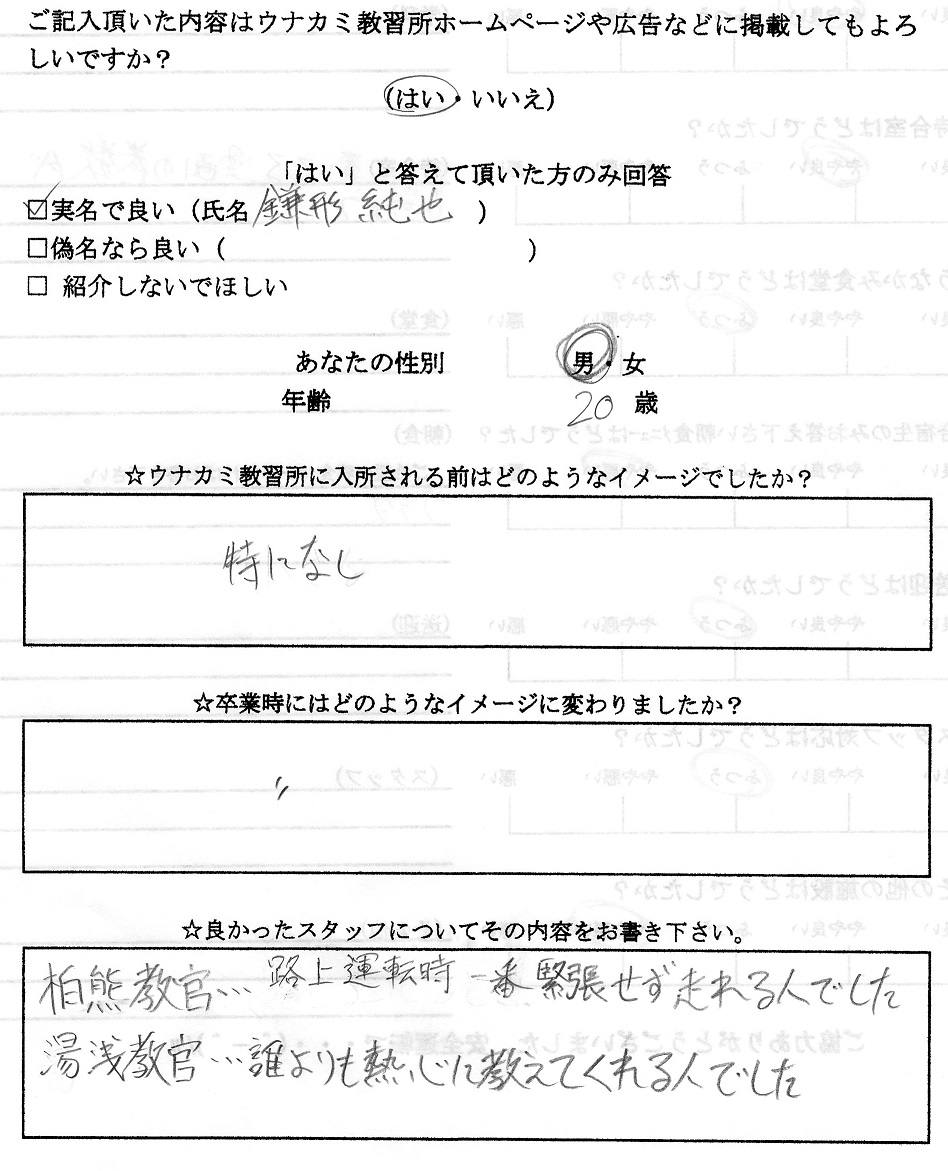 ご記入頂いた内容はウナカミ教習所ホームページや広告などに掲載してもよろ
しいですか？
(はい・いいえ)
「はい」と答えて頂いた方のみ回答
☑実名で良い（氏名 鎌形 純也 ）
□偽名なら良い（ ）
□ 紹介しないでほしい
あなたの性別 男・女
年齢 20 歳
☆ウナカミ教習所に入所される前はどのようなイメージでしたか？
特になし
☆卒業時にはどのようなイメージに変わりましたか？
〃
☆良かったスタッフについてその内容をお書き下さい。
柏熊教官… 路上運転時 一番緊張せず走れる人でした
湯浅教官…誰よりも熱心に教えてくれる人でした